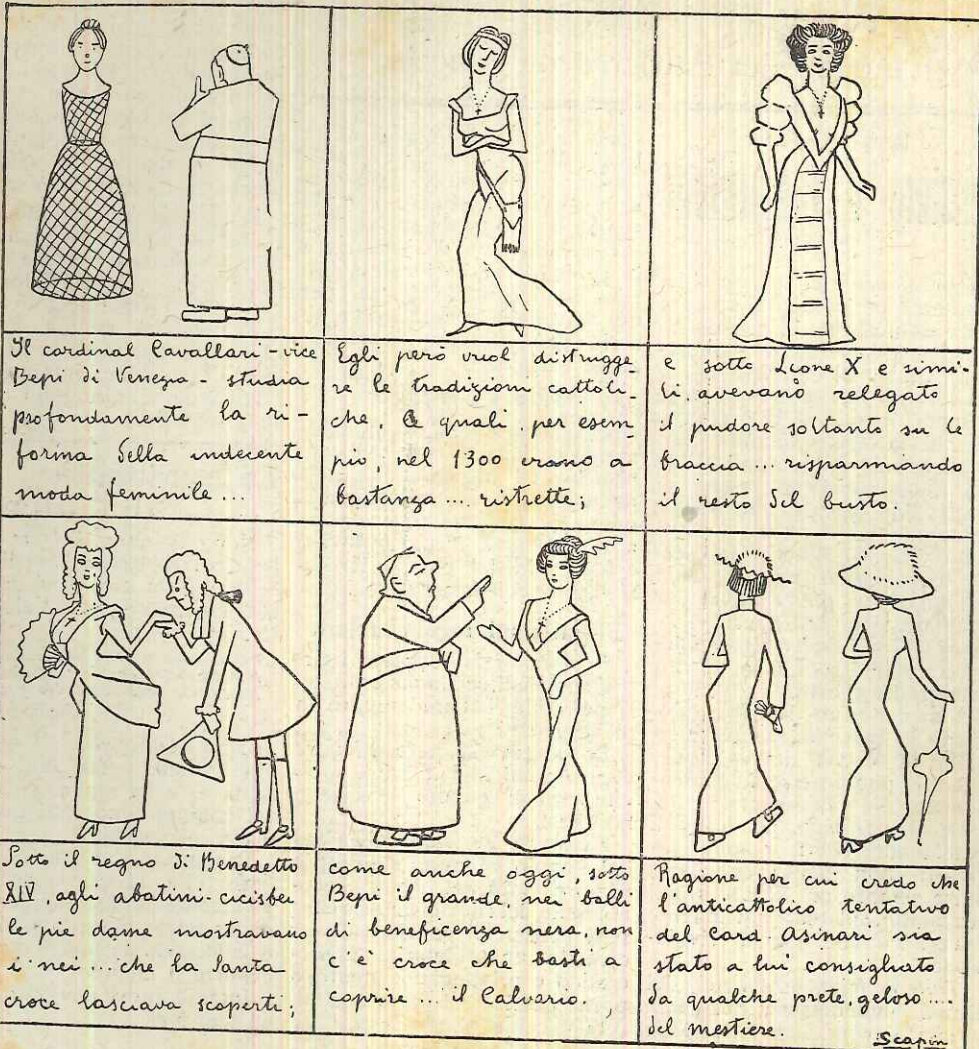 Il cardinal Cavallari - vice
Bepi di Venezia - studia
profondamente la ri-
forma della indecente
moda feminile ...
Egli però vuol distrugge-
re le tradizioni cattoli-
che. Le quali, per esem-
pio, nel 1300 erano a
bastanza ... ristrette;
e sotto Leone X e simi-
li, avevano relegato
il pudore soltanto su le
braccia ... risparmiando
il resto del busto.
Sotto il regno di Benedetto
XIV, agli abatini-cicisbei
le pie dame mostravano
i nei ... che la santa
croce lasciava scoperti;
come anche oggi, sotto
Bepi il grande, nei balli
di beneficenza nera, non
c'è croce che basti a
coprire ... il Calvario.
Ragione per cui credo che
l'anticattolico tentativo
del Card. Asinari sia
stato a lui consigliato
da qualche prete, geloso ....
del mestiere.
Scapin